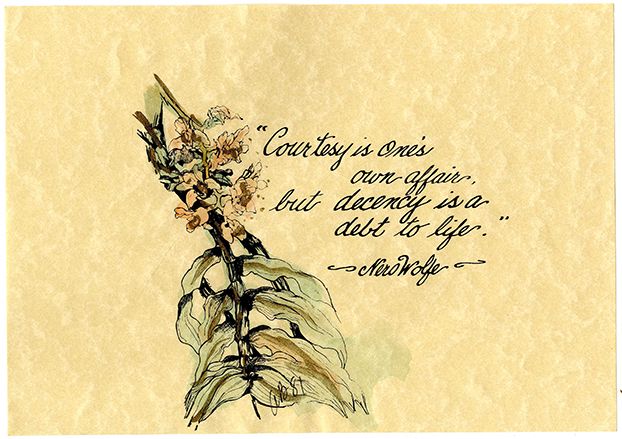 "Courtesy is one's
own affair,
but decency is a
debt to life."
~Nero Wolfe~